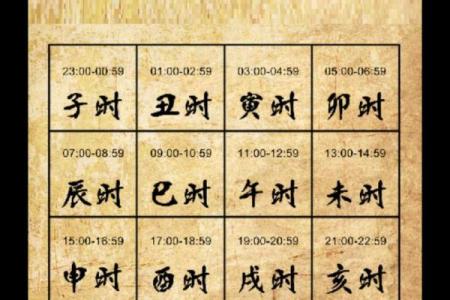 23:00-00:59 01:00-02:59 03:00-04:59 05:00-06:59
子时 丑时 寅时 卯时
07:00-08:59 09:00-10:59 11:00-12:59 13:00-14:59
辰时 巳时 午时 未时
15:00-16:59 17:00-18:59 19:00-20:59 21:00-22:59
申时 酉时 戌时 亥时